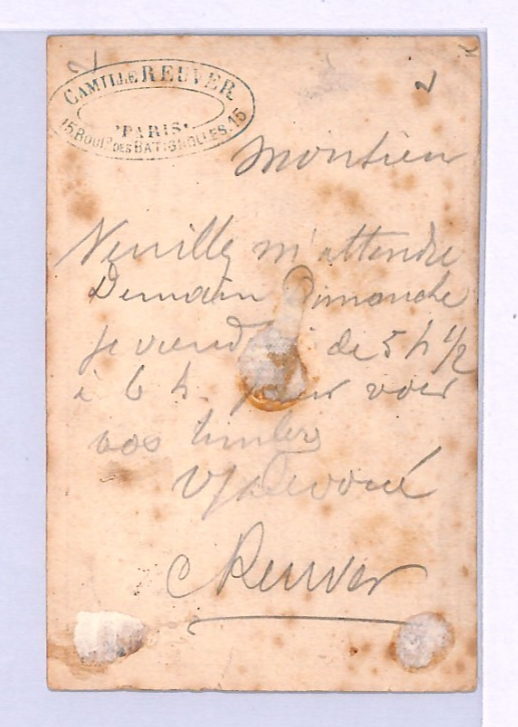 2
2
CAMILLE REUVER.
PARIS
15. BOUL.D DES BATIGNOLLES. 15
Monsieur
Veuillez m'attendre
Demain Dimanche
je viendrai de 5 h 1/2
à 6 h. pour voir
vos timbres
V/ dévoué
CReuver